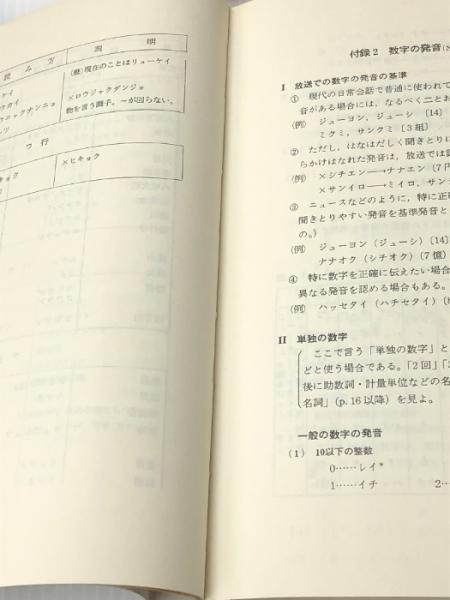 読み方 説明
ケイ (慶)現在のことはリューケイ
ウカイ
ウニャクナンニョ ×ロウジャクダンジョ
ツ 物を言う調子。～が回らない。
ワ行
×ヒキョク
付録2 数字の発音
I 放送での数字の発音の基準
① 現代の日常会話で普通に使われて
音がある場合には,なるべく二とお
(例) ジューヨン,ジューシ〔14〕
ミクミ,サンクミ〔3組〕
② ただし,はなはだしく聞きとりに
らかけはなれた発音は,放送では認
(例) ×シチエン─→ナナエン〔7円
×サンイロ─→ミイロ,サン
③ ニュースなどのように,特に正確
聞きとりやすい発音を基準発音と
の。)
(例) ジューヨン(ジューシ)〔14〕
ナナオク(シチオク)〔7億〕
④ 特に数字を正確に伝えたい場合
異なる発音を認める場合もある。
(例) ハッセタイ(ハチセタイ)〔8
II 単独の数字
ここで言う「単独の数字」と
どと使う場合である。「2回」「3
後に助数詞・計量単位などの名
名詞」(p.16以降)を見よ。
一般の数字の発音
(1) 10以下の整数
0……レイ*
1……イチ 2…